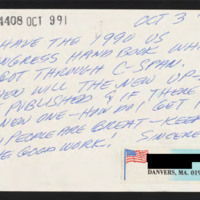 4408 OCT 991
OCT 3
HAVE THE 1990 US
CONGRESS HAND BOOK WH
GOT THROUGH C-SPAN.
WILL THE NEW UP-
PUBLISHED & IF THERE
NEW ONE-HOW DO I GET I
PEOPLE ARE GREAT-KEE
GOOD WORK! SINCERE
DANVERS, MA. 019